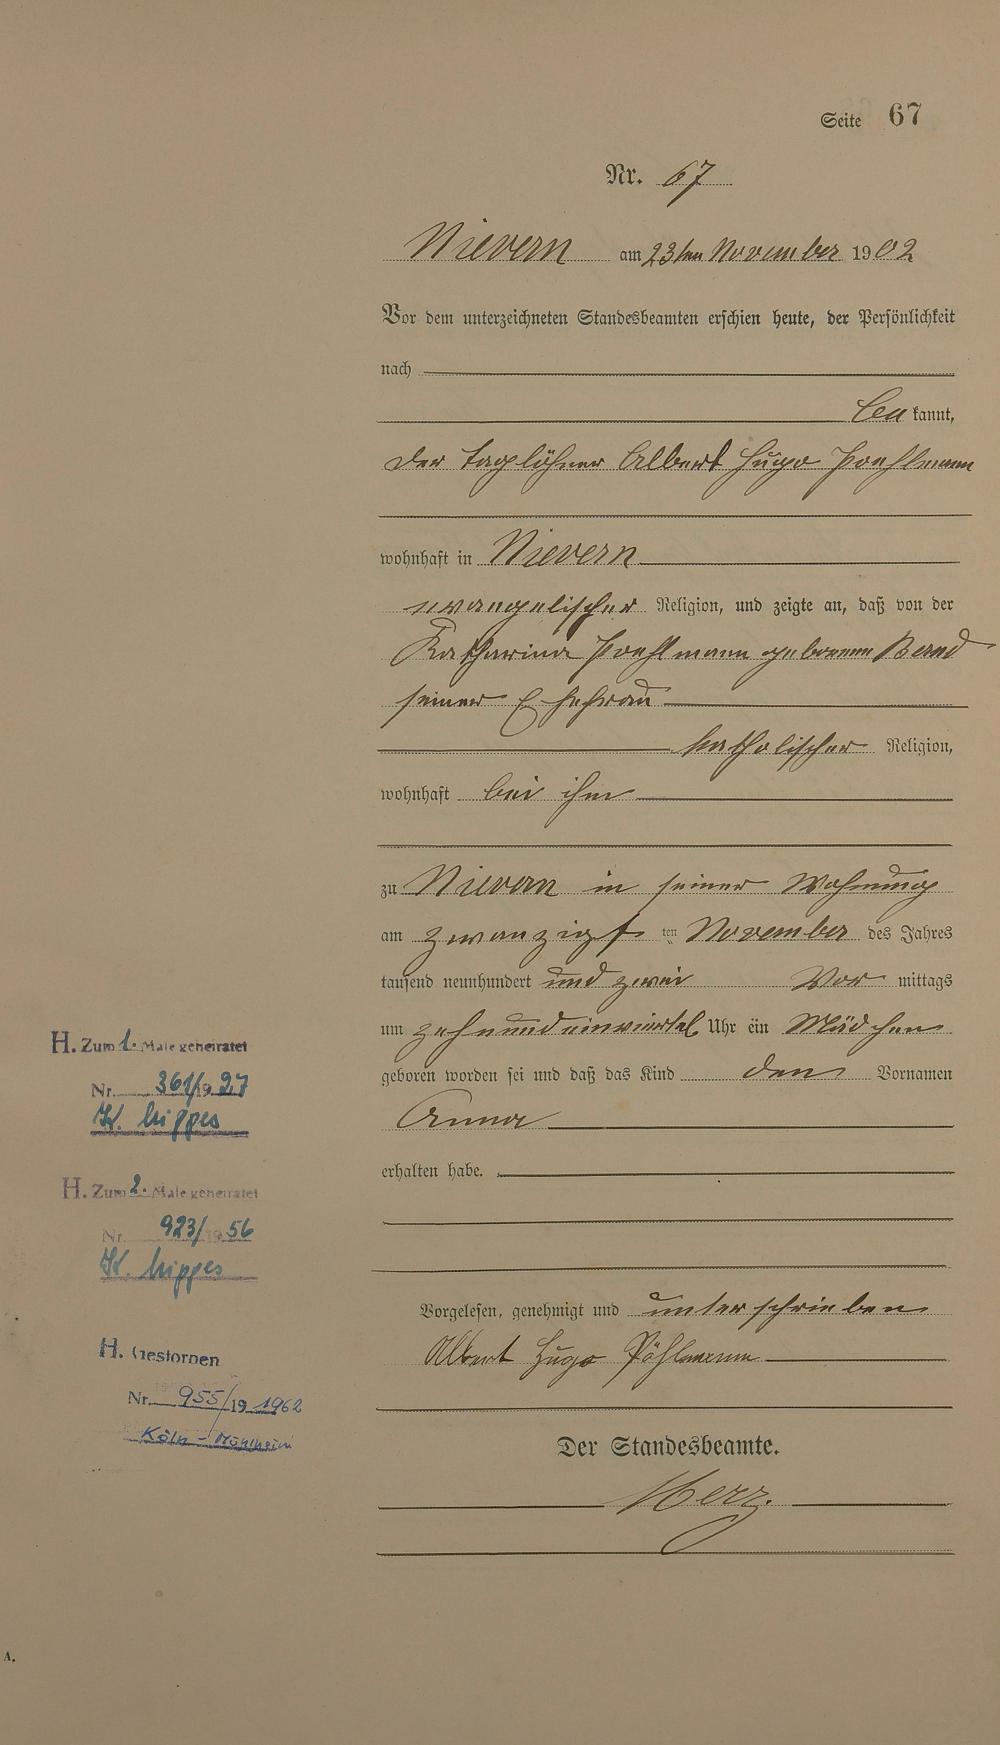 Seite 67
Nr. 67
Nievern am 23ten November 1902
Vor dem unterzeichneten Standesbeamten erschien heute, der Persönlichkeit
nach
bekannt,
der Taglöhner Albert Hugo Poehlmann
wohnhaft in Nievern
evangelischer Religion, und zeigte an, daß von der
Katharina Poehlmann geborenen Bernd
seiner Ehefrau
katholischer Religion,
wohnhaft bei ihm
zu Nievern in seiner Wohnung
am zwanzigsten November des Jahres
tausend neunhundert und zwei Vormittags
um zehnundeinviertel Uhr ein Mädchen
geboren worden sei und daß das Kind den Vornamen
Anna
erhalten habe.
Vorgelesen, genehmigt und unterschrieben
Albert Hugo Pöhlmann
Der Standesbeamte.
Merz.
H. Zum 1. Male geheiratet
Nr. 361/1927
H. Zum 2. Male geheiratet
Nr. 923/1956
H. Gestorben
Nr. 955/19 1962
Köln-Mühlheim
A.